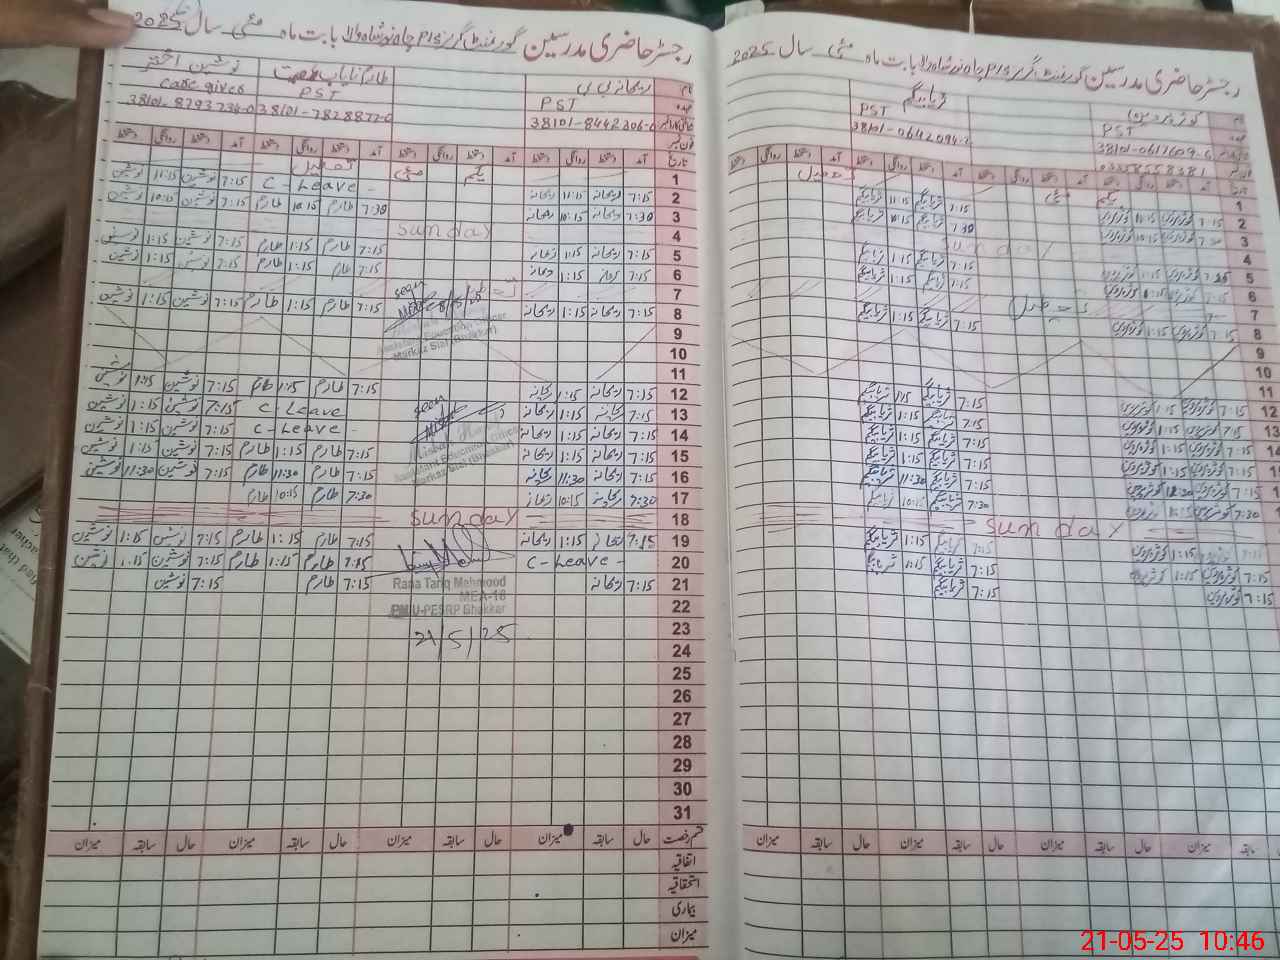 رجسٹر حاضری مدرسین گورنمنٹ گرلز P/S چاہ نور شاہ والا بابت ماہ مئی سال 2025
نام ریحانہ بی بی
عہدہ PST
38101-8442306-0
PST
38101-7828872-0
نوشین اختر
Care giver
38101-8293236-0
تاریخ آمد دستخط روانگی دستخط آمد دستخط روانگی دستخط آمد دستخط روانگی دستخط آمد دستخط روانگی دستخط
1 یکم مئی تعطیل
2 7:15 ریحانہ 11:15 ریحانہ C-Leave 7:15 نوشین 11:15 نوشین
3 7:30 ریحانہ 10:15 ریحانہ 7:30 10:15 7:15 نوشین 10:15 نوشین
4 Sunday
5 7:15 ریحانہ 1:15 ریحانہ 7:15 1:15 7:15 نوشین 1:15 نوشین
6 7:15 ریحانہ 1:15 ریحانہ 7:15 1:15 7:15 نوشین 1:15 نوشین
7
8 7:15 ریحانہ 1:15 ریحانہ 7:15 1:15 7:15 نوشین 1:15 نوشین
seen
8/5/25
Assistant Education Officer
Markaz Sial (Bhakkar)
9
10
11
12 7:15 ریحانہ 1:15 ریحانہ 7:15 1:15 7:15 نوشین 1:15 نوشین
13 7:15 ریحانہ 1:15 ریحانہ C-Leave 7:15 نوشین 1:15 نوشین
14 7:15 ریحانہ 1:15 ریحانہ C-Leave 7:15 نوشین 1:15 نوشین
15 7:15 ریحانہ 1:15 ریحانہ 7:15 1:15 7:15 نوشین 1:15 نوشین
16 7:15 ریحانہ 11:30 ریحانہ 7:15 11:30 7:15 نوشین 11:30 نوشین
seen
Assistant Education Officer
Markaz Sial (Bhakkar)
17 7:30 ریحانہ 10:15 ریحانہ 7:30 10:15
18 Sunday
19 7:15 ریحانہ 1:15 ریحانہ 7:15 1:15 7:15 نوشین 1:15 نوشین
20 C-Leave 7:15 1:15 7:15 نوشین 1:15 نوشین
21 7:15 ریحانہ 7:15 7:15 نوشین
Rana Tariq Mehmood
MEA-18
PMIU-PESRP Bhakkar
21/5/25
22
23
24
25
26
27
28
29
30
31
قسم رخصت حال سابقہ میزان حال سابقہ میزان حال سابقہ میزان حال سابقہ میزان
اتفاقیہ
استحقاقیہ
بیماری
میزان
رجسٹر حاضری مدرسین گورنمنٹ گرلز P/S چاہ نور شاہ والا بابت ماہ مئی سال 2025
نام کوثر پروین
عہدہ PST
38101-0617609-6
03338558381
ثریا بیگم
PST
38101-0642094-2
تاریخ آمد دستخط روانگی دستخط آمد دستخط روانگی دستخط آمد دستخط روانگی دستخط آمد دستخط روانگی دستخط
1 یکم مئی تعطیل
2 7:15 کوثر پروین 11:15 کوثر پروین 7:15 ثریا بیگم 11:15 ثریا بیگم
3 7:30 کوثر پروین 10:15 کوثر پروین 7:30 ثریا بیگم 10:15 ثریا بیگم
4 Sunday
5 7:15 کوثر پروین 1:15 کوثر پروین 7:15 ثریا بیگم 1:15 ثریا بیگم
6 7:15 کوثر پروین 1:15 کوثر پروین 7:15 ثریا بیگم 1:15 ثریا بیگم
7
8 7:15 کوثر پروین 1:15 کوثر پروین 7:15 ثریا بیگم 1:15 ثریا بیگم
9
10
11
12 7:15 کوثر پروین 1:15 کوثر پروین 7:15 ثریا بیگم 1:15 ثریا بیگم
13 7:15 کوثر پروین 1:15 کوثر پروین 7:15 ثریا بیگم 1:15 ثریا بیگم
14 7:15 کوثر پروین 1:15 کوثر پروین 7:15 ثریا بیگم 1:15 ثریا بیگم
15 7:15 کوثر پروین 1:15 کوثر پروین 7:15 ثریا بیگم 1:15 ثریا بیگم
7:15 کوثر پروین کوثر پروین 7:15 ثریا بیگم 11:30 ثریا بیگم
7:30 کوثر پروین کوثر پروین 7:30 ثریا بیگم 10:15 ثریا بیگم
Sunday
7:15 کوثر پروین 1:15 کوثر پروین 7:15 ثریا بیگم 1:15 ثریا بیگم
7:15 کوثر پروین 1:15 کوثر پروین 7:15 ثریا بیگم 1:15 ثریا بیگم
7:15 کوثر پروین 7:15 ثریا بیگم
سابقہ میزان حال سابقہ میزان حال سابقہ میزان حال سابقہ میزان
21-05-25 10:46